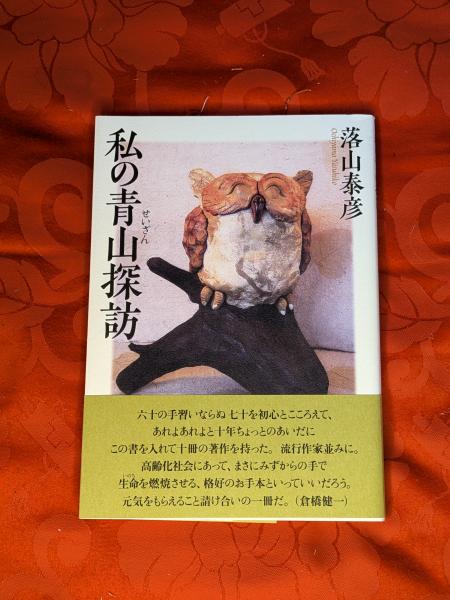 落山泰彦
Ochiyama Yasuhiko
私の青山探訪
せいざん
六十の手習いならぬ七十を初心とこころえて、
あれよあれよと十年ちょっとのあいだに
この書を入れて十冊の著作を持った。流行作家並みに。
高齢化社会にあって、まさにみずからの手で
いのち
生命を燃焼させる、格好のお手本といっていいだろう。
元気をもらえること請け合いの一冊だ。(倉橋健一)